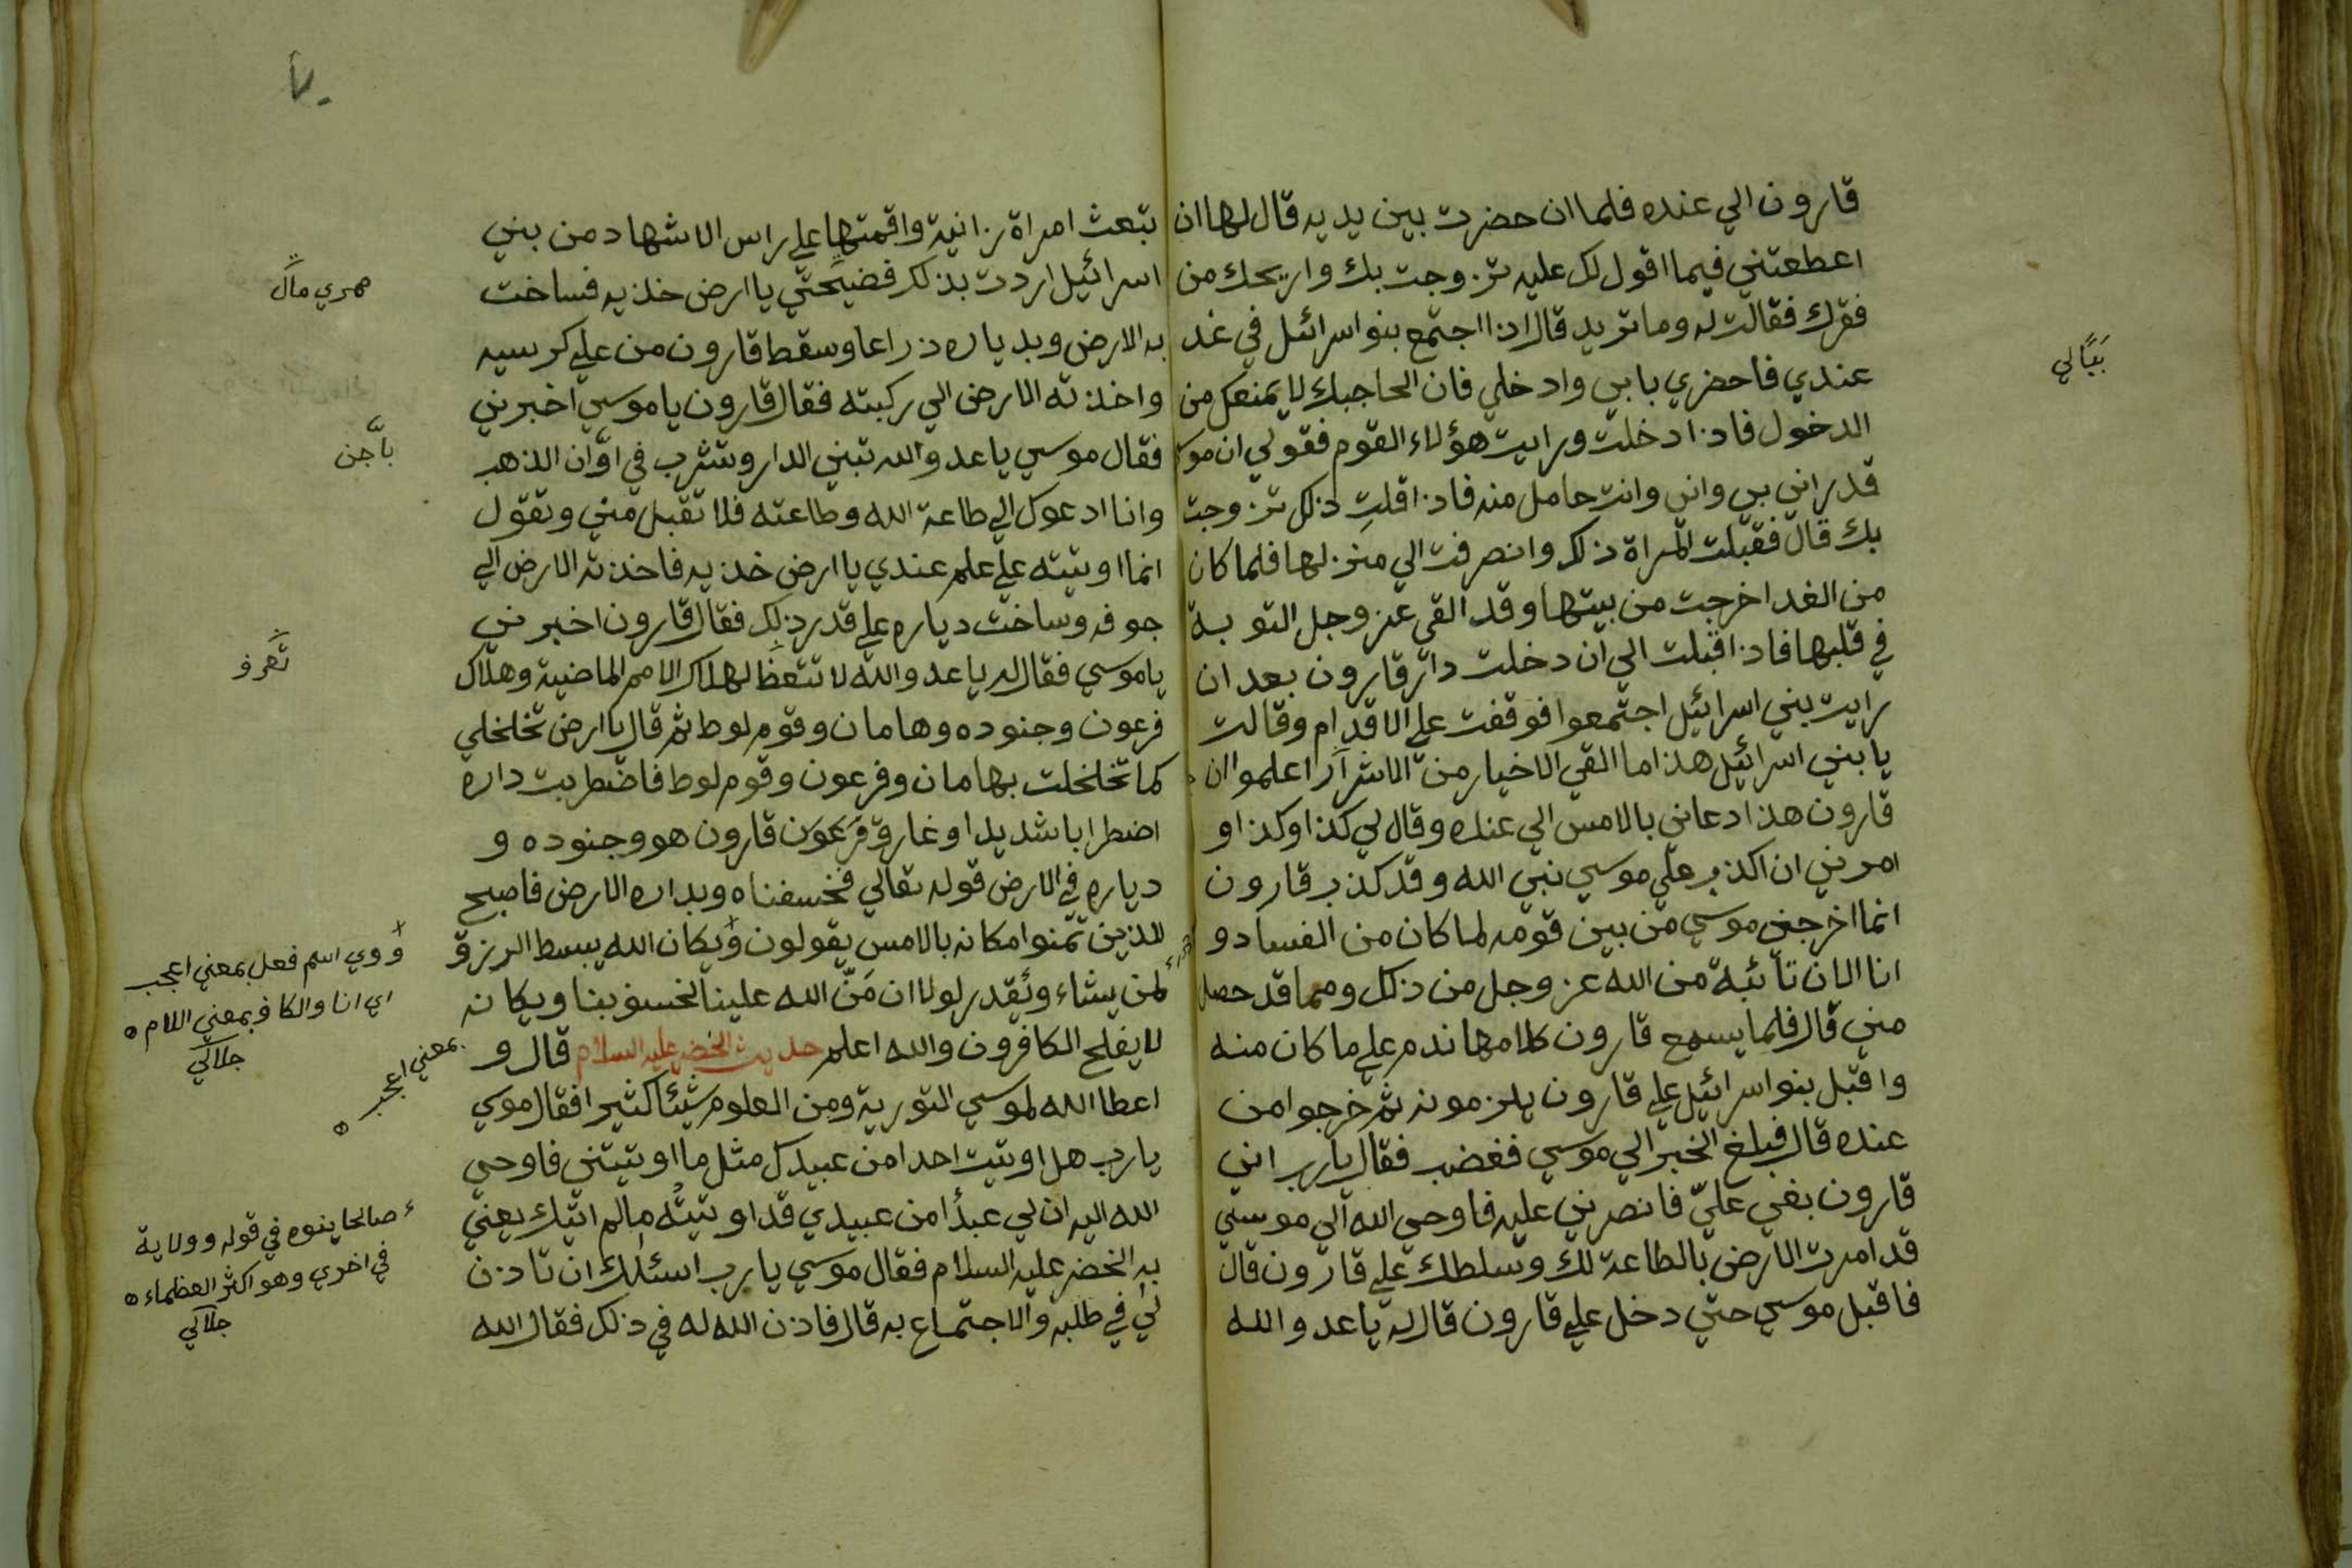 قارون الي عنده فلما ان حضرت بين يديه قال لها ان
اعطعتني فيما اقول لك عليه تزوجت بك واريحك من
فقرك فقالت له وما تريد قال اذا اجتمع بنوا سرائل في غد
عندي فاحضري بابي وادخلي فان الحاجبك لا يمنعك من
الدخول فاذا دخلت ورايت هؤلاء القوم فقولي ان
قد راني بي واني وانت حامل منه فاذا قلتِ ذلك تزوجت
بك قال فقبلت المراة ذلك وانصرفت الي منزلها فلما كان
من الغد اخرجت من بيتها وقد القي عز وجل التوبة
في قلبها فاذا اقبلت الي ان دخلت دار قارون بعد ان
رايت بني اسرائيل اجتمعوا فوقفت علي الاقدام وقالت
يا بني اسرائيل هذا ما القي الاخيار من الاشرار اعلموا ان
قارون هذا دعاني بالامس الي عنده وقال لي كذا وكذا و
امرني ان اكذب علي موسي نبي الله وقد كذب قارون
انما اخرجني موسي من بين قومه لما كان من الفساد و
انا الان تائبة من الله عز وجل من ذلك ومما قد حصل
مني قال فلما يسمع قارون كلامها ندم علي ما كان منه
واقبل بنوا سرائيل علي قارون يلزمونه ثم خرجوا من
عنده قال فبلغ الخبر الي موسي فغضب فقال يارب اني
قارون بغي عليّ فانصرني عليه فاوحي الله الي موسي
قد امرت الارض بالطاعة لك وسلطك علي قارون قال
فاقبل موسي حتي دخل علي قارون قال له ياعدو الله
بيّالي
تبعث امراة زانية واقمتها علي راس الاشهاد من بني
اسرائيل اردت بذلك فضيحتي يا ارض خذيه فساخت
به الارض وبدياره ذراعا وسقط قارون من علي كرسيه
واخذته الارض الي ركبته فقال قارون ياموسي اخبرني
فقال موسي ياعدو الله تبني الدار وتشرب في اوّان الذهب
وانا ادعوك الي طاعة الله وطاعته فلا تقبل مني وتقول
انما اوتيته علي علم عندي يا ارض خذيه فاخذته الارض الي
جوفه وساخت دياره علي قدر ذلك فقال قارون اخبرني
ياموسي فقال له ياعدو الله لا تتعظ لهلاك الامم الماضية وهلاك
فرعون وجنوده وهامان وقوم لوط ثم قال يا ارض تخلخلي
كما تخلخلت بهامان وفرعون وقوم لوط فاضطربت داره
اضطرابا شديدا وغارق فرعون قارون هو وجنوده و
دياره في الارض قوله تعالي فخسفناه وبداره الارض فاصبح
للذين تمنوا مكانه بالامس يقولون ويكان الله يبسط الرزق
لمن يشاء ويقدر لولا ان منّ الله علينا لخسف بنا ويكانه
لا يفلح الكافرون والله اعلم حديث الخضر عليه السلام قال و
اعطا الله لموسي التورية ومن العلوم شيئا كثيرا فقال موسي
يارب هل اوتيت احدا من عبيدك مثل ما اوتيتني فاوحي
الله اليه ان لي عبدًا من عبيدي قد اوتيتُه مالم اتيك يعني
به الخضر عليه السلام فقال موسي يارب اسئلك ان تاذن
لي في طلبه والاجتماع به قال فاذن الله له في ذلك فقال الله
باجن
تعرف
وَ وي اسم فعل بمعني اعجب
اي انا والكاف بمعني اللام
جلالي
بمعني اعجب
صالحا ينوه في قوله وولاية
في اخري وهو اكثر العظماء
جلالي